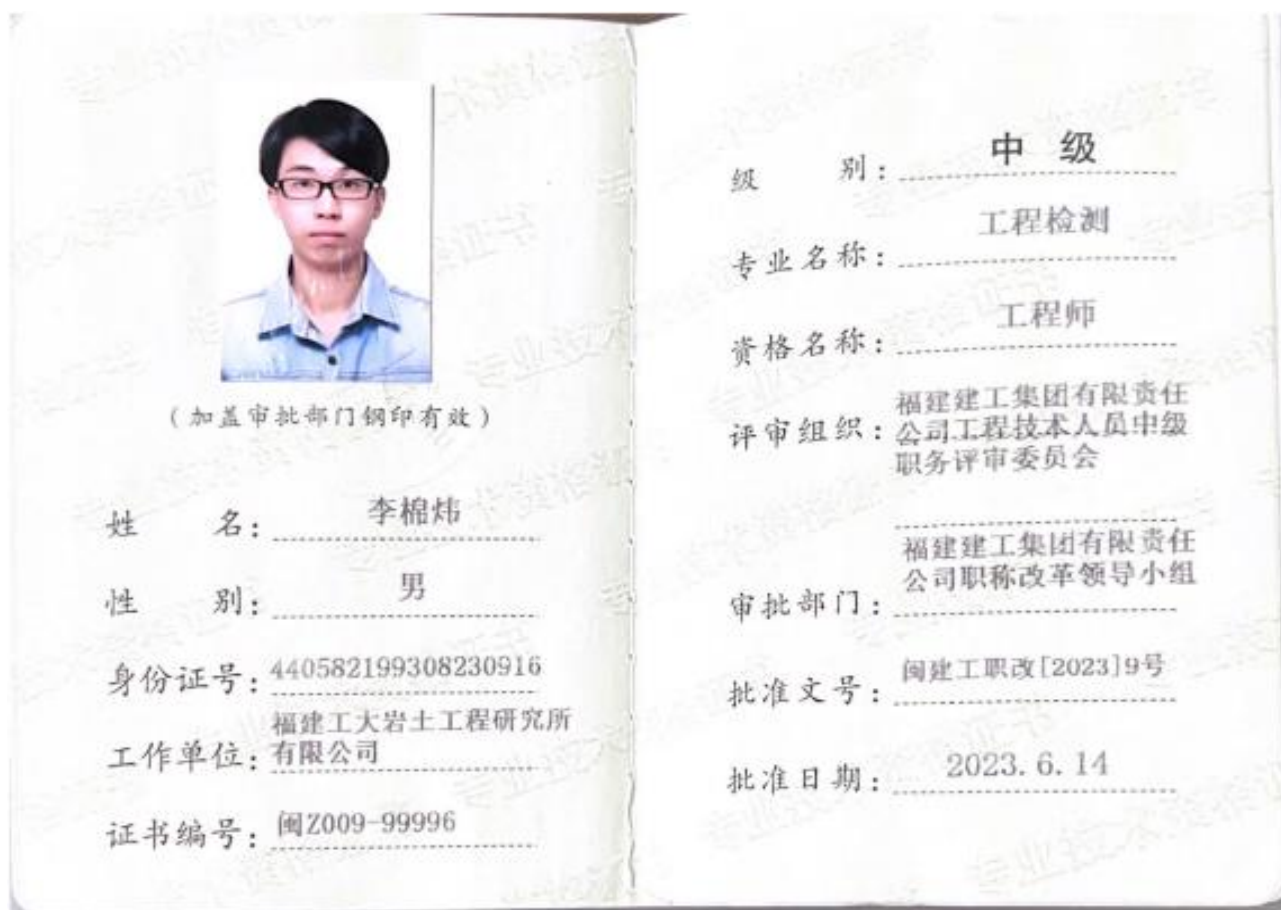 (加盖审批部门钢印有效)
姓 名: 李棉炜
性 别: 男
身份证号: 440582199308230916
工作单位: 福建工大岩土工程研究所
有限公司
证书编号: 闽Z009-99996
级 别: 中 级
专业名称: 工程检测
资格名称: 工程师
评审组织: 福建建工集团有限责任
公司工程技术人员中级
职务评审委员会
审批部门: 福建建工集团有限责任
公司职称改革领导小组
批准文号: 闽建工职改[2023]9号
批准日期: 2023.6.14